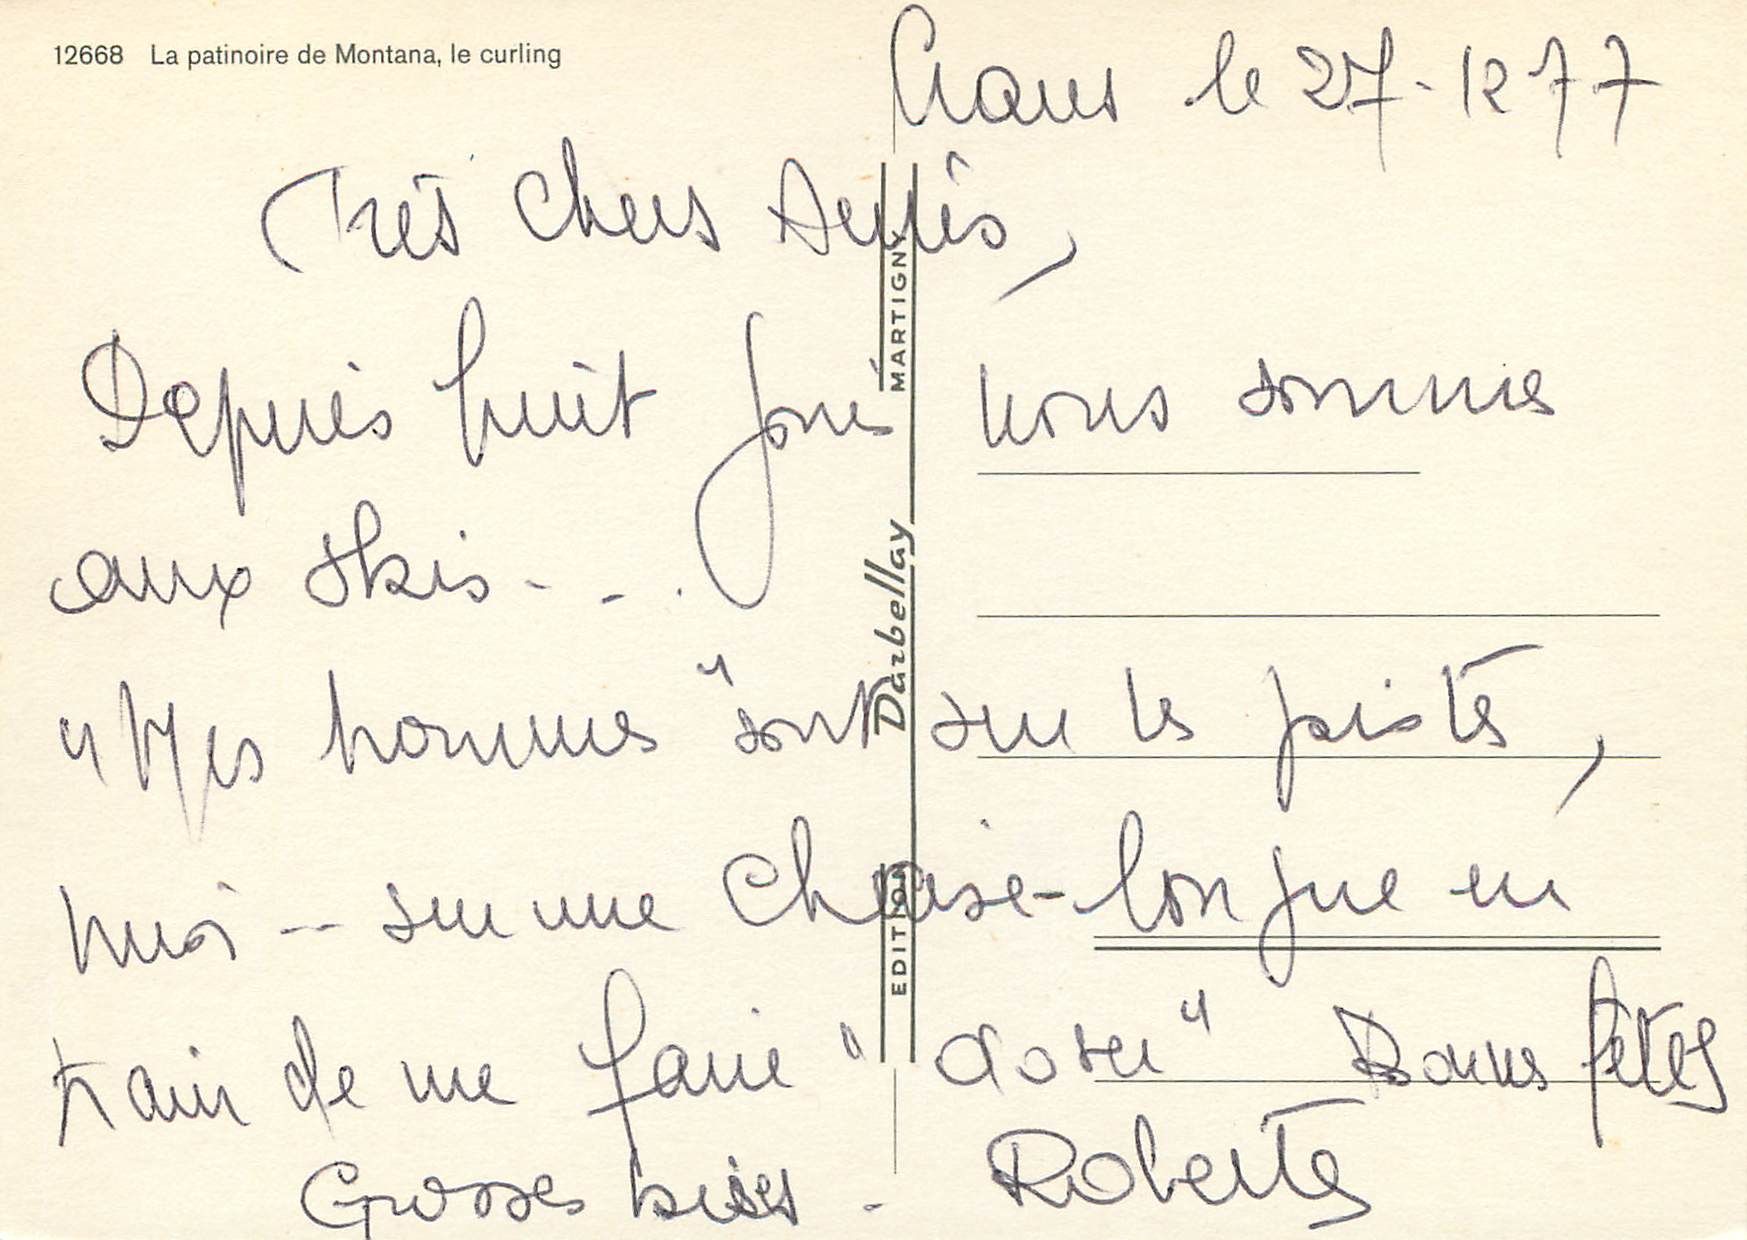 12668 La patinoire de Montana, le curling
Crans le 27-12 77
Très Chers Amis,
Depuis huit jours nous sommes
aux skis - - .
"Mes hommes" sont sur les pistes,
moi -- sur une Chaise-longue en
train de me faire "doser" Bonnes fêtes
Grosses bises - Roberte
EDITION Darbellay MARTIGNY